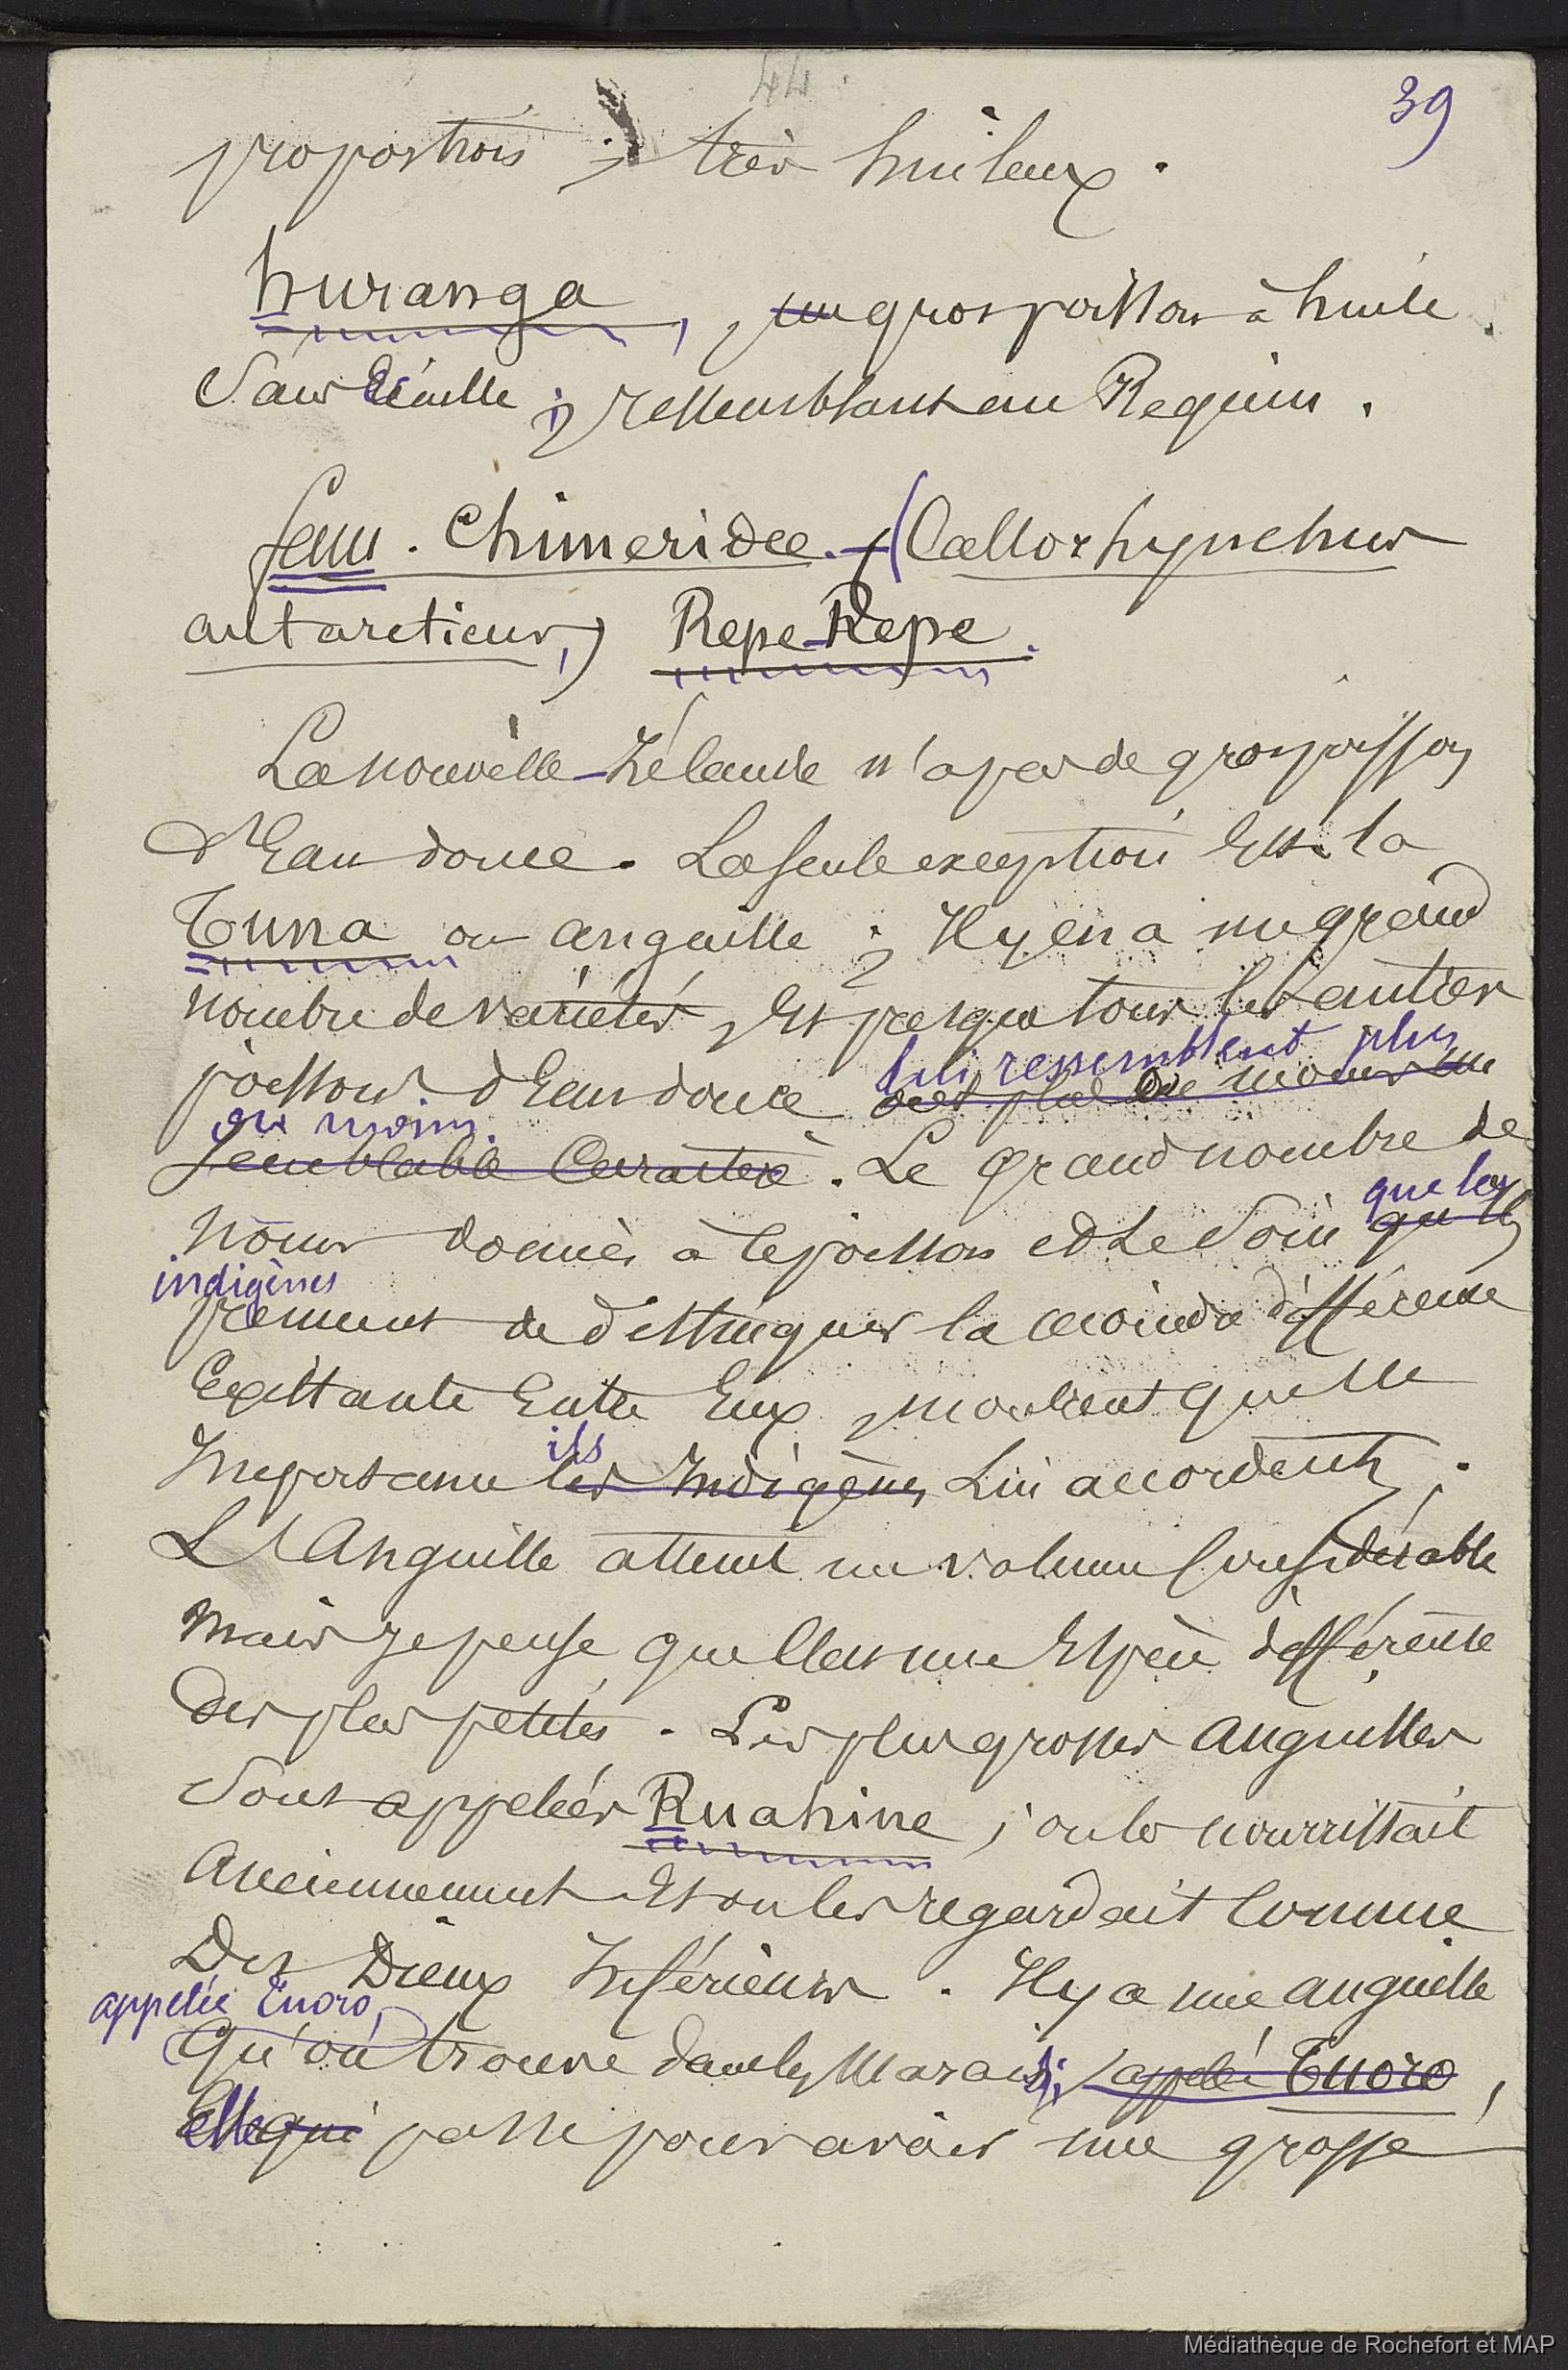 44
39
proportions ; très huileux.
huranga, ~~un~~ gros poisson à huile
Sans Ecaille ; ressemblant au Requin.
fam. Chimeridee. (Callorhynchus
antarcticus,) Repe-Repe.
La nouvelle-Zélande n'a pas de gros poissons
d'Eau douce. La seule exception Est la
Tuna ou anguille ; Il y en a un grand
nombre de variétés, Et presque tous les autres
lui ressemblent plus
poissons d'Eau douce ~~ont plus ou moins un~~
ou moins.
~~semblable Caractère~~. Le grand nombre de
que les
noms donnés à ce poisson et Le Soin ~~qu'Ils~~
indigènes
prennent de distinguer la moindre différence
Existante Entre Eux, montrent quelle
ils
Importance ~~les Indigènes~~ Lui accordent.
L'Anguille atteint un volume Considérable
Mais je pense que c'est une Espèce différente
Des plus petites. Les plus grosses anguilles
Sont appelées Ruahine ; on les nourrissait
Anciennement Et on les regardait Comme
Des Dieux Inférieurs. Il y a une anguille
appelée Tuoro,
Qu'on trouve dans les Marais ; ~~appelée Tuoro~~,
elle ~~qui~~ passe pour avoir une grosse
Médiathèque de Rochefort et MAP